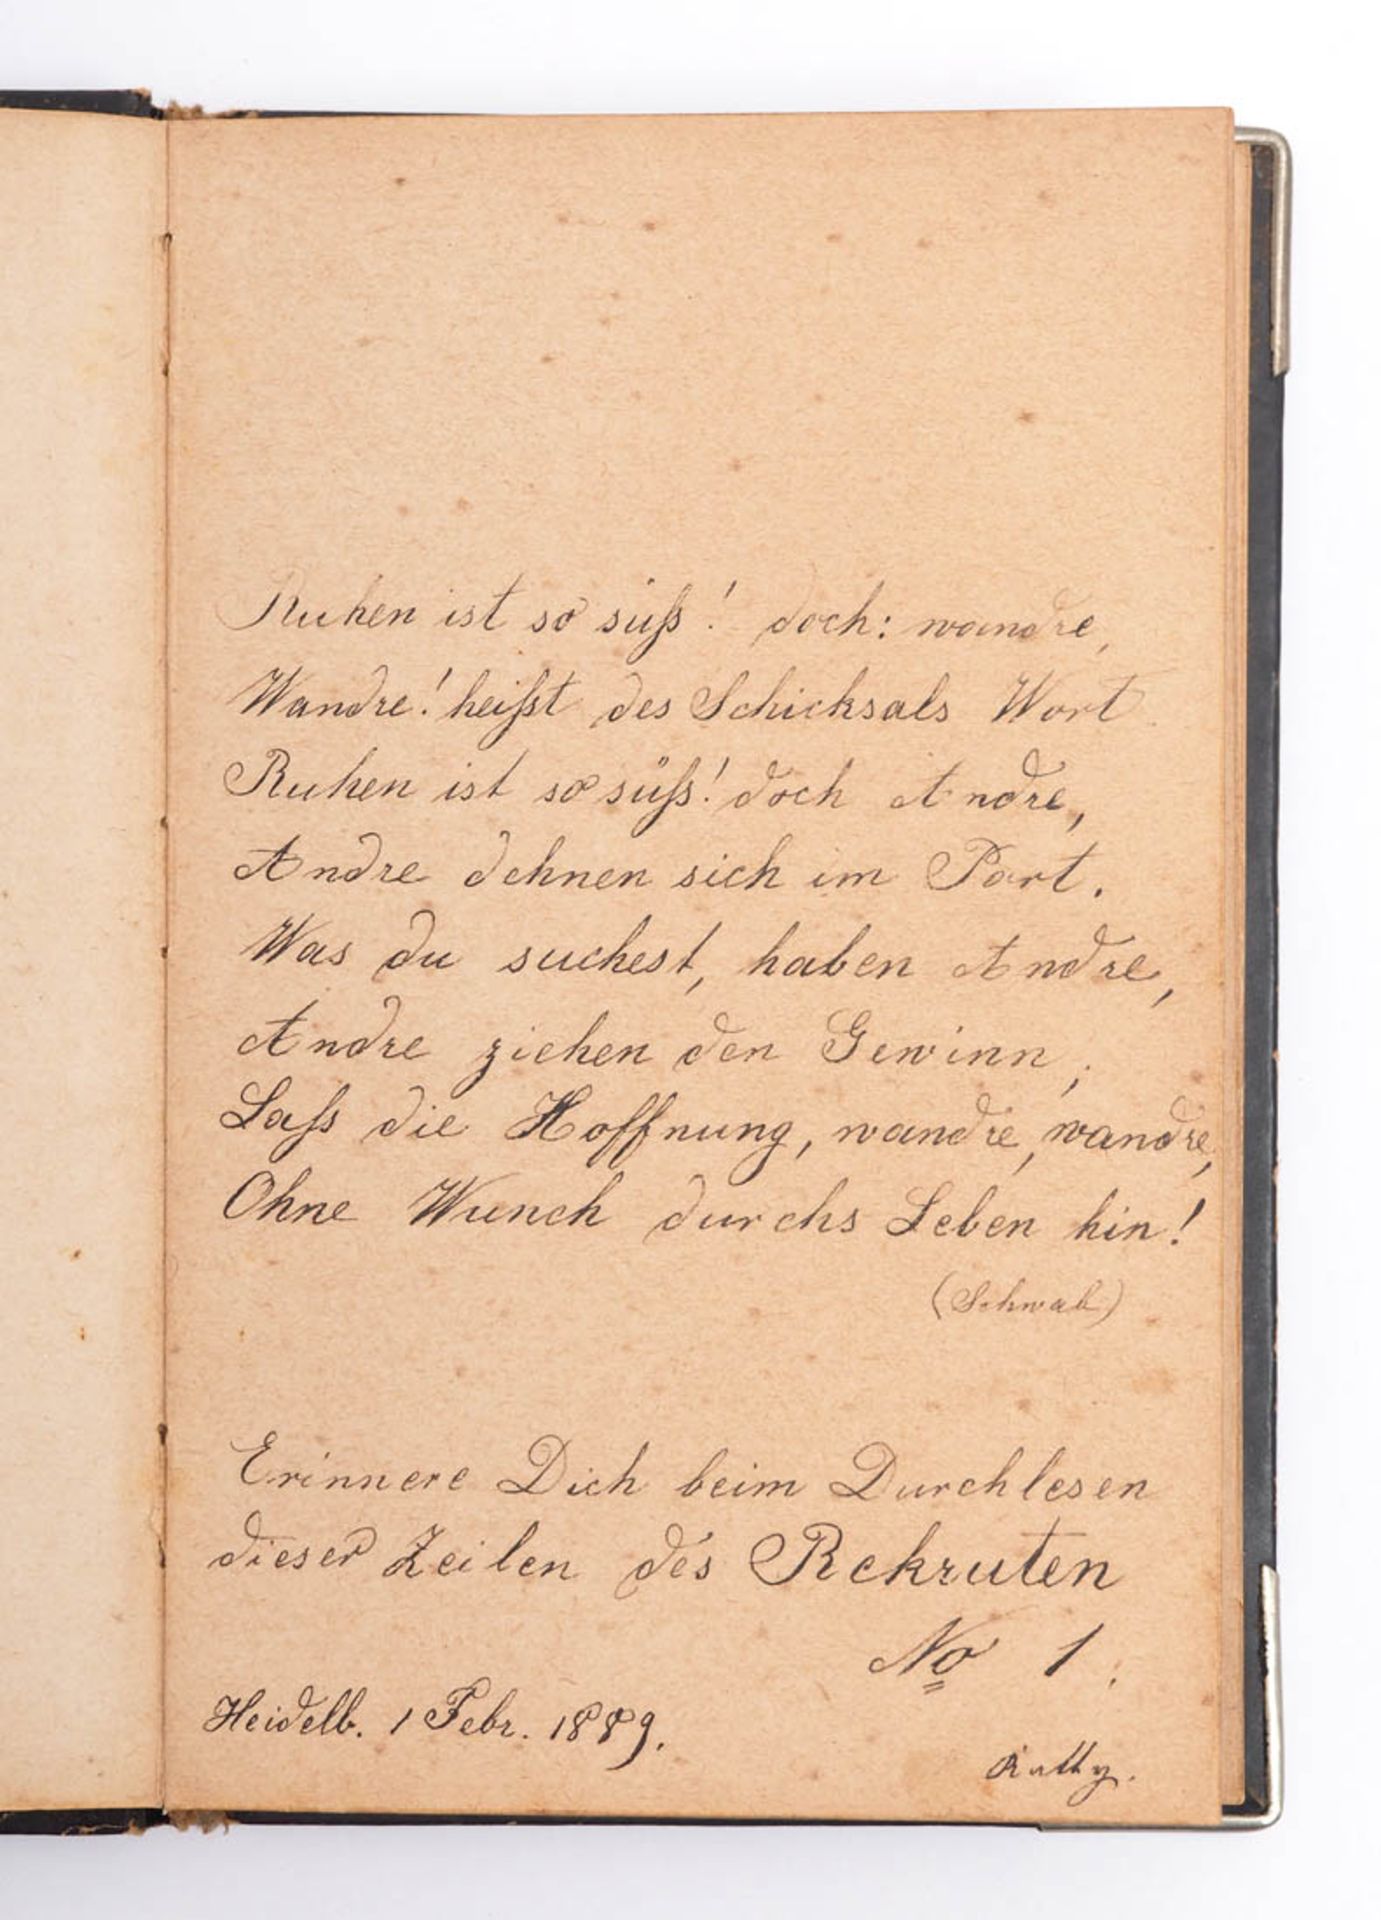 Ruhen ist so süß! doch: wandre,
Wandre! heißt des Schicksals Wort
Ruhen ist so süß! doch Andre,
Andre dehnen sich im Port.
Was du suchest, haben Andre,
Andre ziehen den Gewinn;
Laß die Hoffnung, wandre, wandre,
Ohne Wunch durchs Leben hin!
(Schwab)
Erinnere Dich beim Durchlesen
dieser Zeilen des Rekruten
No 1.
Heidelb. 1 Febr. 1889.